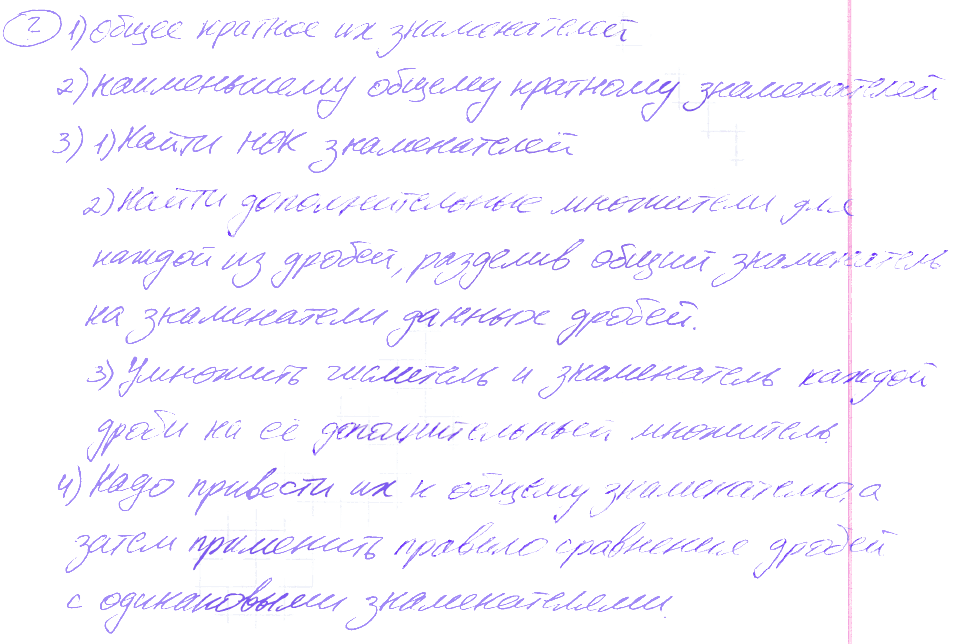 ? 1) общее кратное их знаменателей
2) наименьшему общему кратному знаменателей
3) 1) Найти НОК знаменателей
2) Найти дополнительные множители для
каждой из дробей, разделив общий знаменатель
на знаменатели данных дробей.
3) Умножить числитель и знаменатель каждой
дроби на её дополнительный множитель.
4) Надо привести их к общему знаменателю, а
затем применить правило сравнения дробей
с одинаковыми знаменателями